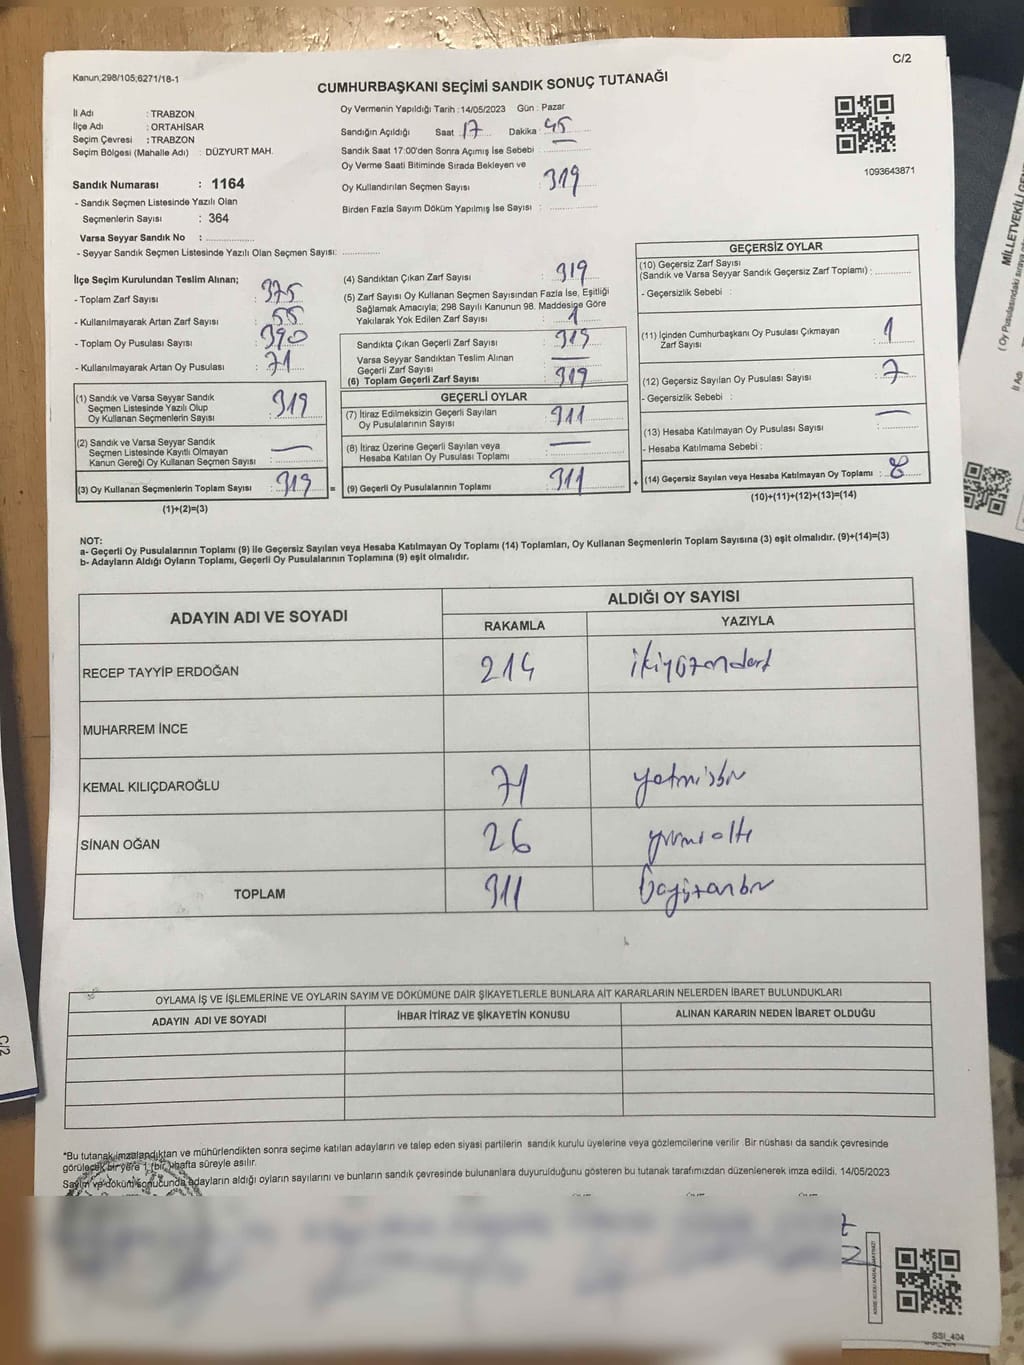 C/2
Kanun;298/105;6271/18-1
CUMHURBAŞKANI SEÇİMİ SANDIK SONUÇ TUTANAĞI
İl Adı : TRABZON
İlçe Adı : ORTAHİSAR
Seçim Çevresi : TRABZON
Seçim Bölgesi (Mahalle Adı) : DÜZYURT MAH.
Oy Vermenin Yapıldığı Tarih : 14/05/2023 Gün : Pazar
Sandığın Açıldığı Saat : 17 Dakika : 45
Sandık Saat 17:00'den Sonra Açımış İse Sebebi :
Oy Verme Saati Bitiminde Sırada Bekleyen ve
Oy Kullandırılan Seçmen Sayısı : 319
Birden Fazla Sayım Döküm Yapılmış İse Sayısı :
1093643871
Sandık Numarası : 1164
- Sandık Seçmen Listesinde Yazılı Olan
Seçmenlerin Sayısı : 364
Varsa Seyyar Sandık No :
- Seyyar Sandık Seçmen Listesinde Yazılı Olan Seçmen Sayısı:
İlçe Seçim Kurulundan Teslim Alınan;
- Toplam Zarf Sayısı : 375
- Kullanılmayarak Artan Zarf Sayısı : 55
- Toplam Oy Pusulası Sayısı : 390
- Kullanılmayarak Artan Oy Pusulası : 71
(1) Sandık ve Varsa Seyyar Sandık
Seçmen Listesinde Yazılı Olup
Oy Kullanan Seçmenlerin Sayısı : 319
(2) Sandık ve Varsa Seyyar Sandık
Seçmen Listesinde Kayıtlı Olmayan
Kanun Gereği Oy Kullanan Seçmen Sayısı : —
(3) Oy Kullanan Seçmenlerin Toplam Sayısı : 319 =
(1)+(2)=(3)
(4) Sandıktan Çıkan Zarf Sayısı : 319
(5) Zarf Sayısı Oy Kullanan Seçmen Sayısından Fazla İse, Eşitliği
Sağlamak Amacıyla; 298 Sayılı Kanunun 98. Maddesine Göre
Yakılarak Yok Edilen Zarf Sayısı : 1
Sandıkta Çıkan Geçerli Zarf Sayısı : 319
Varsa Seyyar Sandıktan Teslim Alınan
Geçerli Zarf Sayısı : —
(6) Toplam Geçerli Zarf Sayısı : 319
GEÇERLİ OYLAR
(7) İtiraz Edilmeksizin Geçerli Sayılan
Oy Pusulalarının Sayısı : 311
(8) İtiraz Üzerine Geçerli Sayılan veya
Hesaba Katılan Oy Pusulası Toplamı : —
(9) Geçerli Oy Pusulalarının Toplamı : 311 +
GEÇERSİZ OYLAR
(10) Geçersiz Zarf Sayısı
(Sandık ve Varsa Seyyar Sandık Geçersiz Zarf Toplamı) :
- Geçersizlik Sebebi :
(11) İçinden Cumhurbaşkanı Oy Pusulası Çıkmayan
Zarf Sayısı : 1
(12) Geçersiz Sayılan Oy Pusulası Sayısı : 7
- Geçersizlik Sebebi :
(13) Hesaba Katılmayan Oy Pusulası Sayısı : —
- Hesaba Katılmama Sebebi :
(14) Geçersiz Sayılan veya Hesaba Katılmayan Oy Toplamı : 8
(10)+(11)+(12)+(13)=(14)
NOT:
a- Geçerli Oy Pusulalarının Toplamı (9) ile Geçersiz Sayılan veya Hesaba Katılmayan Oy Toplamı (14) Toplamları, Oy Kullanan Seçmenlerin Toplam Sayısına (3) eşit olmalıdır. (9)+(14)=(3)
b- Adayların Aldığı Oyların Toplamı, Geçerli Oy Pusulalarının Toplamına (9) eşit olmalıdır.
ADAYIN ADI VE SOYADI ALDIĞI OY SAYISI
RAKAMLA YAZIYLA
RECEP TAYYİP ERDOĞAN 214 ikiyüzondört
MUHARREM İNCE
KEMAL KILIÇDAROĞLU 71 yetmişbir
SİNAN OĞAN 26 yirmialtı
TOPLAM 311
OYLAMA İŞ VE İŞLEMLERİNE VE OYLARIN SAYIM VE DÖKÜMÜNE DAİR ŞİKAYETLERLE BUNLARA AİT KARARLARIN NELERDEN İBARET BULUNDUKLARI
ADAYIN ADI VE SOYADI İHBAR İTİRAZ VE ŞİKAYETİN KONUSU ALINAN KARARIN NEDEN İBARET OLDUĞU
*Bu tutanak imzalandıktan ve mühürlendikten sonra seçime katılan adayların ve talep eden siyasi partilerin sandık kurulu üyelerine veya gözlemcilerine verilir Bir nüshası da sandık çevresinde
görülecek bir yere 1 (bir) hafta süreyle asılır.
Sayım ve döküm sonucunda adayların aldığı oyların sayılarını ve bunların sandık çevresinde bulunanlara duyurulduğunu gösteren bu tutanak tarafımızdan düzenlenerek imza edildi. 14/05/2023
SSI_404
C/2
MİLLETVEKİLİ
( Oy Pusulasındaki sıraya
İl Adı